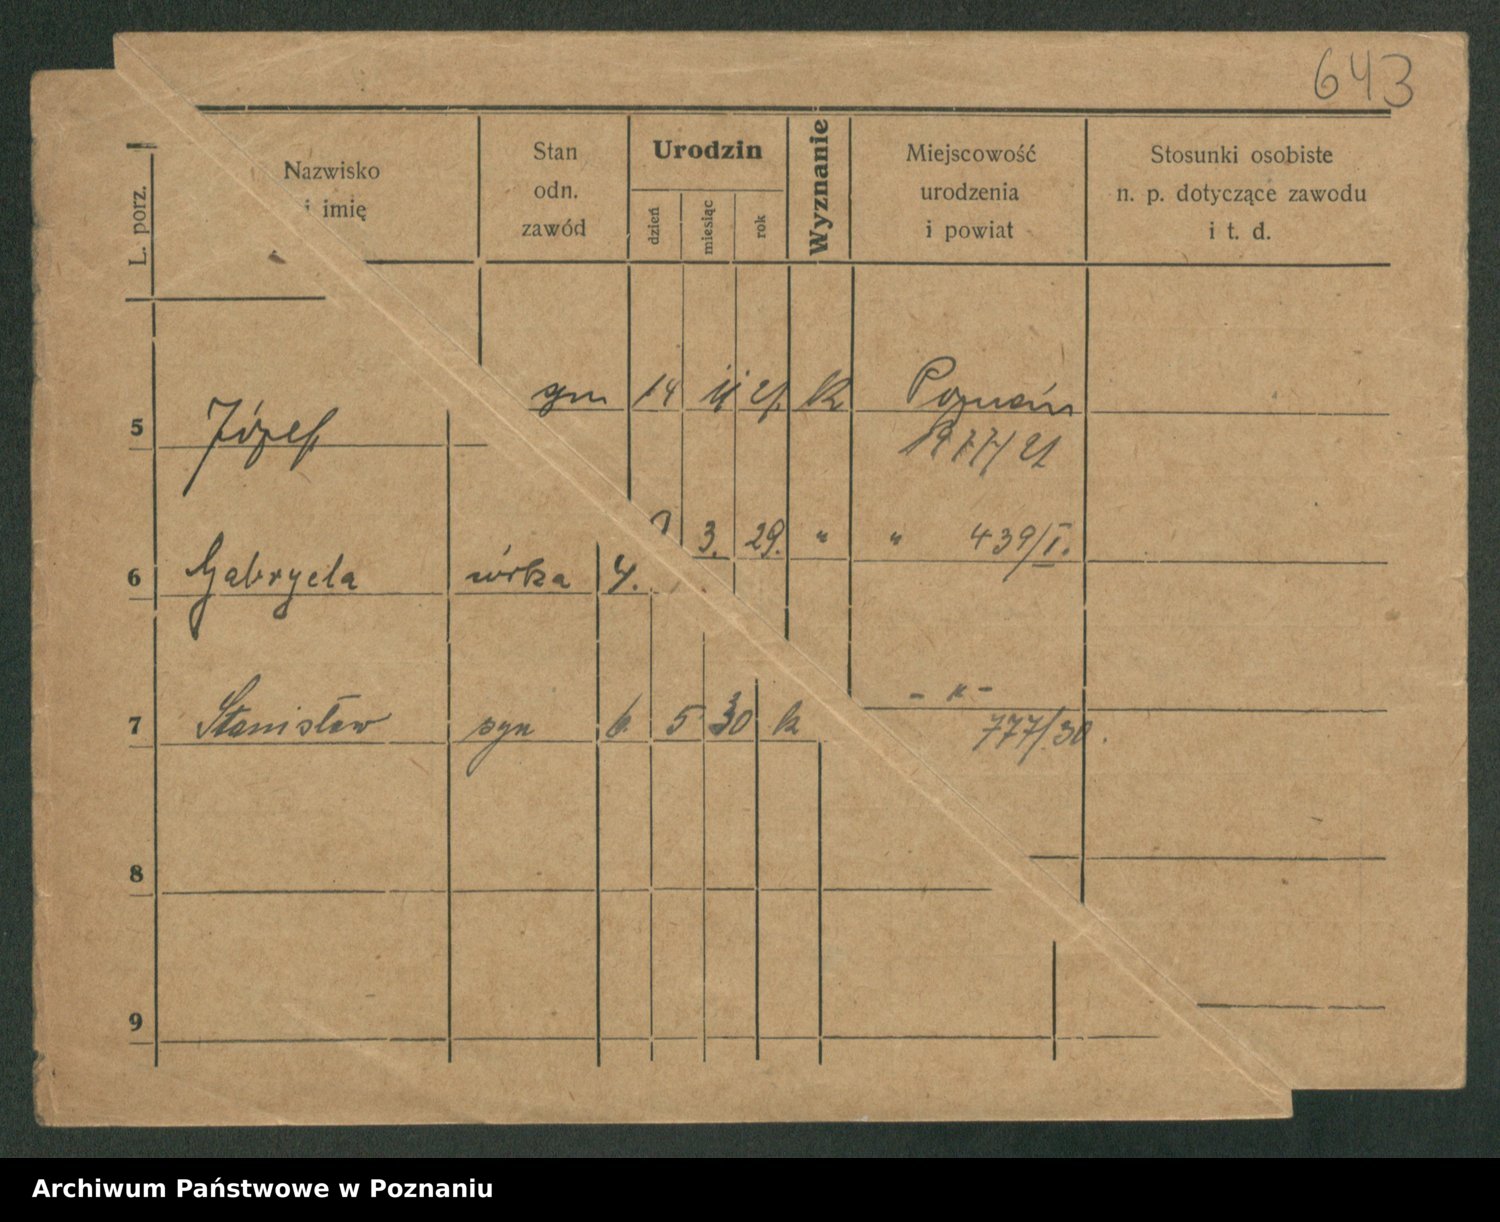 643
L. porz.
Nazwisko
i imię
Stan
odn.
zawód
Urodzin
dzień
miesiąc
rok
Wyznanie
Miejscowość
urodzenia
i powiat
Stosunki osobiste
n. p. dotyczące zawodu
i t. d.
5 Józef syn 14 21. k Poznań
6 Gabryela córka 4. 3. 29. " " 439/I.
7 Stanisław syn 6. 5 30 k - " -
777/30.
8
9
Archiwum Państwowe w Poznaniu